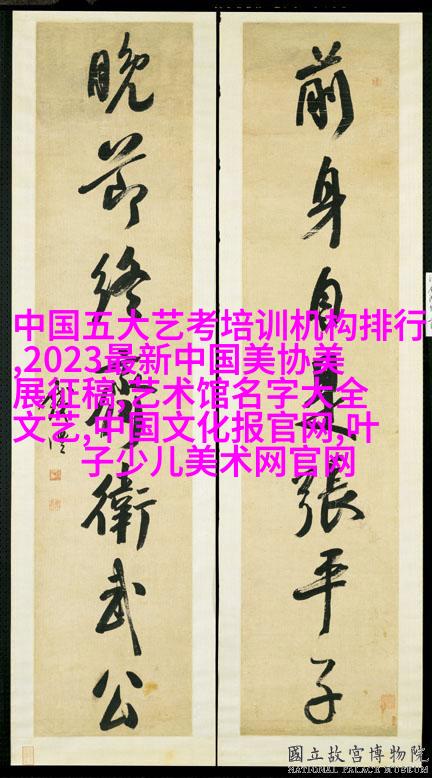 前身自張平子
晚節終衛武公
中国五大艺考培训机构排行
,2023最新中国美协美
展征稿,艺术馆名字大全
文艺,中国文化报官网,叶
子少儿美术网官网
國立故宮博物院
NATIONAL PALACE MUSEUM